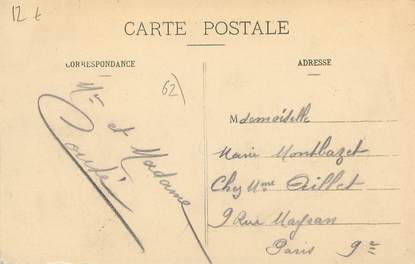 12 €
CARTE POSTALE
CORRESPONDANCE
ADRESSE
62
Mr et Madame
Couté
Mdemoiselle
Marie Montbazet
Chez Mme Aillet
9 Rue Mayran
Paris 9e